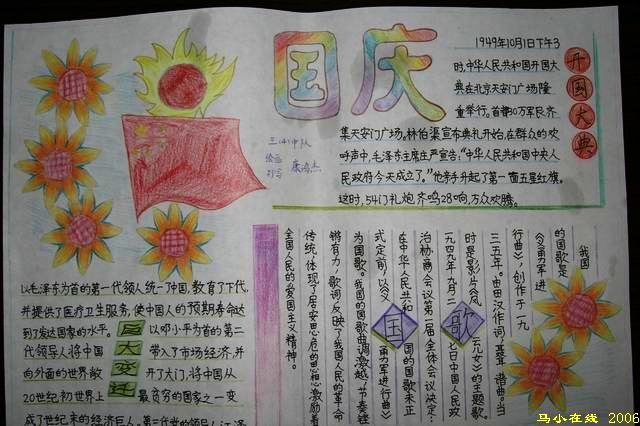 国庆
1949年10月1日下午3
时,中华人民共和国开国大
典在北京天安门广场隆
重举行。首都30万军民齐
集天安门广场。林伯渠宣布典礼开始,在群众的欢
呼声中,毛泽东主席庄严宣告:"中华人民共和国中央人
民政府今天成立了。"他亲手升起了第一面五星红旗。
这时,54门礼炮齐鸣28响,万众欢腾。
开国大典
三(4)中队
绘画
抄写
我国
的国歌是
《义勇军进
行曲》,创作于一九
三五年。由田汉作词,聂耳谱曲。当
时是影片《风云儿女》的主题歌。
一九四九年九月二七日中国人民政
治协商会议第一届全体会议决定:
在中华人民共和国的国歌未正
式定前,以《义勇军进行曲》
为国歌。我国的国歌曲调激越,节奏铿
锵有力,歌词反映了我国人民的革命
传统,体现了居安思危的思想,激励着
全国人民的爱国主义精神。
国歌
以毛泽东为首的第一代领人统一了中国,教育了下代,
并提供了医疗卫生服务,使中国人的预期寿命达
到了发达国家的水平。以邓小平为首的第二
代领导人将中国带入了市场经济,并
向外面的世界敞开了大门,将中国从
20世纪初世界上最贫穷的国家之一变
成了世纪末的经济巨人。第三代党的领导人江泽
大变迁
马小在线 2006